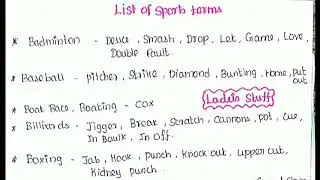 List of Sports terms
* Badminton - Deuce, Smash, Drop, Let, Game, Love,
Double fault.
* Baseball - pitcher, Strike, Diamond, Bunting, Home, Put
out
* Boat Race, Boating - Cox
Ladels Stuff
* Billiards - Jigger, Break, Scratch, Cannons, pot, Cue,
In Baulk, In Off.
* Boxing - Jab, Hook, Punch, Knock out, Upper cut,
Kidney punch.